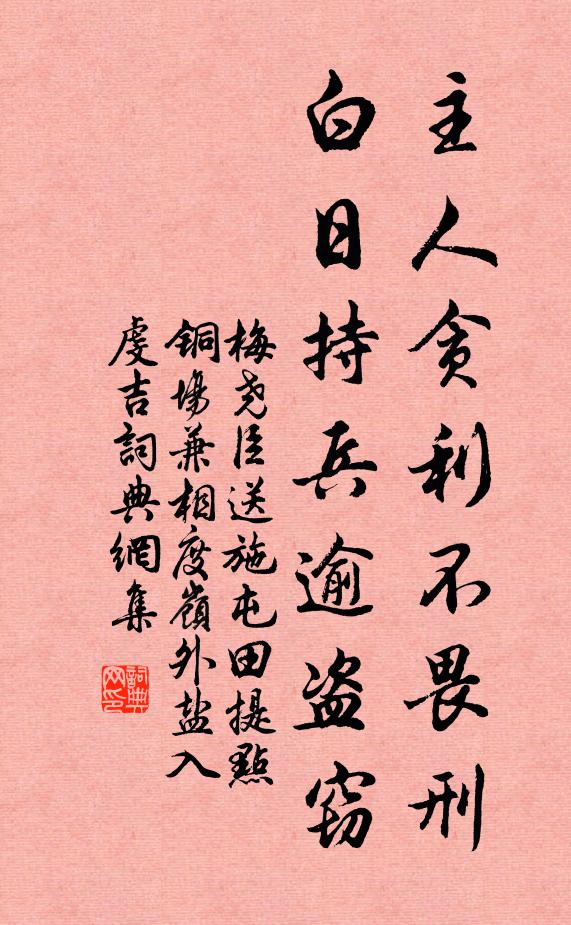 主人贪利不畏刑
白日持兵逾盗窃
梅尧臣送施屯田提點
銅場兼相度嶺外盐入
虔吉詞典網集
詞典
网印